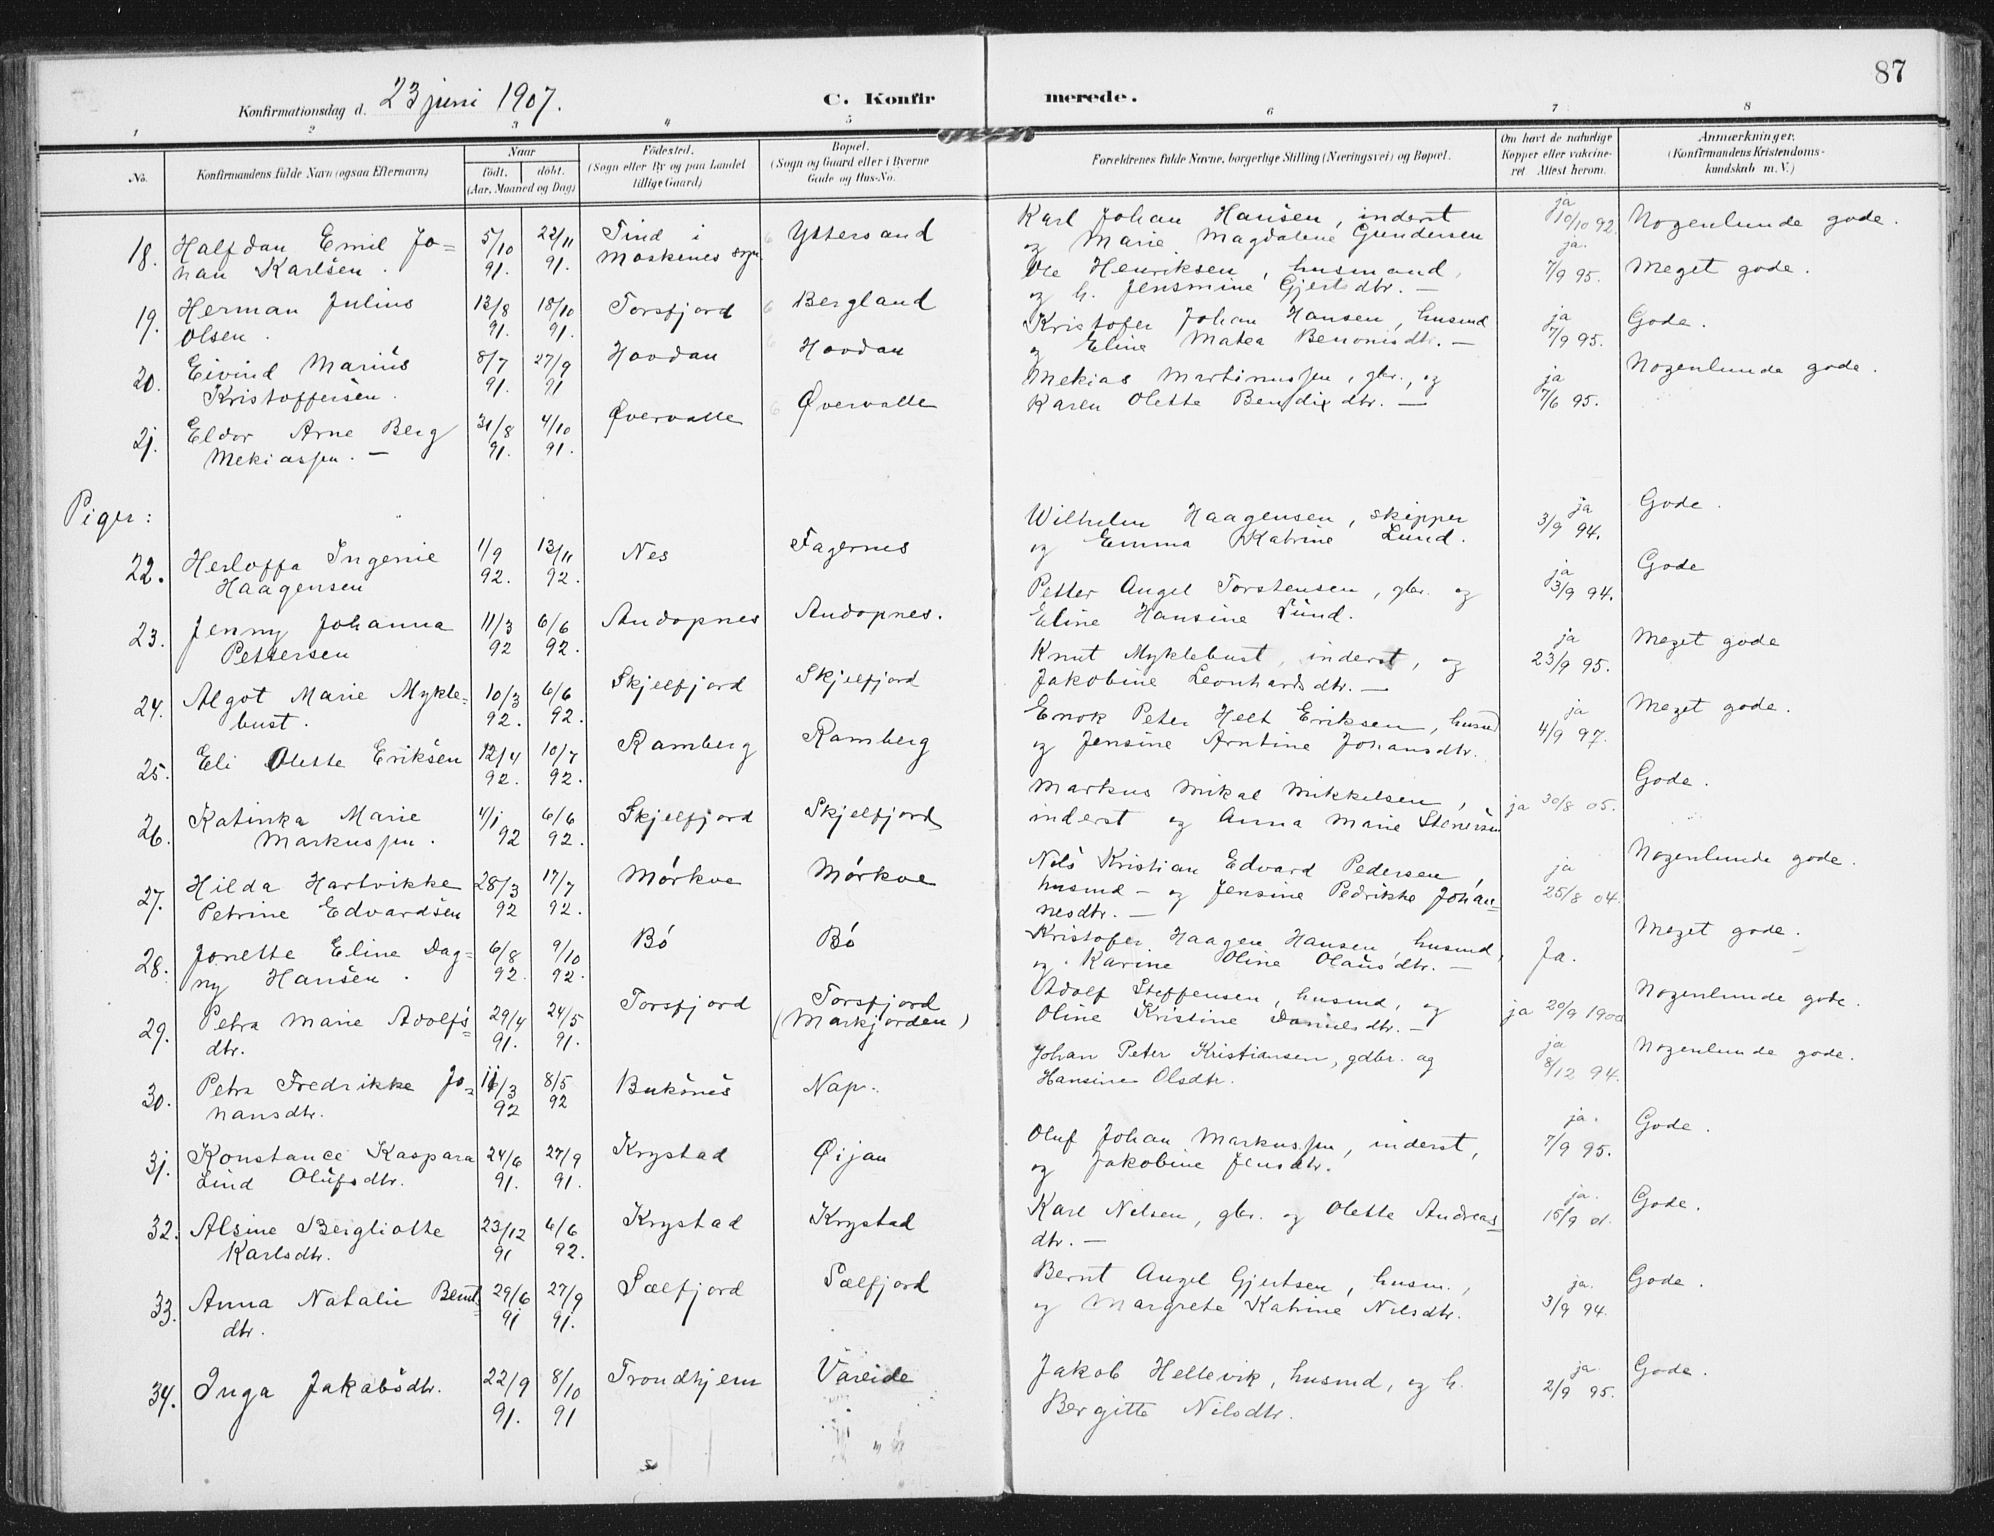 87
Konfirmationsdag d. 23 juni 1907.
C. Konfirmerede.
1 2 3 4 5 6 7 8
No.
Konfirmandens fulde Navn (ogsaa Efternavn)
Naar
födt. döbt.
(Aar, Maaned og Dag)
Födested.
(Sogn eller By og paa Landet
tillige Gaard)
Bopæl.
(Sogn og Gaard eller i Byerne
Gade og Hus-No.
Forældrenes fulde Navne, borgerlige Stilling (Næringsvei) og Bopæl.
Om havt de naturlige
Kopper eller vakcine-
ret Attest herom.
Anmærkninger.
(Konfirmandens Kristendoms-
kundskab m. V.)
18. Halfdan Emil Jo= 5/10 22/11 Tind i Yttersand Karl Johan Hansen, inderst ja 10/10 92. Nogenlunde gode.
han Karlsen. 91. 91. Moskenes sogn og Marie Magdalene Gundersen
19. Herman Julius 13/8 18/10 Torsfjord Bergland Ole Henriksen, husmand, ja. 7/9 95. Meget gode.
Olsen. 91. 91. og h. Jensmine Gjertsdtr. —
20. Eivind Marius 8/7 27/9 Hovdan Hovdan Kristofer Johan Hansen, husmd ja 7/9 95. Gode.
Kristoffersen. 91. 91 og Eline Matea Benonisdtr. —
21. Eldor Arne Berg 31/8 4/10 Øvervatte Øvervatte Mekias Martinussen, gbr., og ja 7/6 95. Nogenlunde gode.
Mekiassen. — 91. 91. Karen Olette Bendixdtr. —
Piger:
22. Herloffa Ingenie 1/9 13/11 Nes Fagernes Wilhelm Haagensen, skipper ja 3/9 94. Gode.
Haagensen 92. 92. og Emma Katrine Lund.
23. Jenny Johanna 11/3 6/6 Andopnes Andopnes. Petter Angel Torstensen, gbr. og ja 3/9 94. Gode
Pettersen 92 92. Eline Hansine Lund.
24. Algot Marie Mykle= 10/3 6/6 Skjelfjord Skjelfjord Knut Myklebust, inderst, og ja 23/9 95. Meget gode
bust. 92. 92. Jakobine Leonhardsdtr. —
25. Eli Olette Eriksen 12/4 10/7 Ramberg Ramberg Enok Peter Helt Eriksen, husmd ja 4/9 97. Meget gode.
92. 92. og Jensine Arntine Johansdtr.
26. Katinka Marie 4/1 6/6 Skjelfjord Skjelfjord Markus Mikal Mikkelsen, ja 30/8 05. Gode.
Markussen. 92 92. inderst og Anna Marie Stenersen
27. Hilda Hartvikke 28/3 17/7 Mørkve Mørkve Nils Kristian Edvard Pedersen, ja 25/8 04. Nogenlunde gode.
Petrine Edvardsen 92 92. husmd — og Jensine Pedrikke Johan=
nesdtr. —
28. Jonette Eline Dag= 6/8 9/10 Bö Bö Kristofer Haagen Hansen, husmd, Ja. Meget gode.
ny Hansen. 92. 92. og Karine Oline Olausdtr. —
29. Petra Marie Adolfs= 29/4 24/5 Torsfjord Torsfjord Adolf Steffensen, husmd, og ja 20/9 1900 Nogenlunde gode.
dtr. 91. 91. (Markjorden) Oline Kristine Danielsdtr. —
30. Petra Fredrikke Jo= 11/3 8/5 Buksnes Nap. Johan Peter Kristiansen, gdbr. og ja 8/12 94. Nogenlunde gode.
hansdtr. 92 92 Hansine Olsdtr.
31. Konstance Kaspara 24/6 27/9 Krystad Øijan Oluf Johan Markussen, inderst, ja. 7/9 95. Gode.
Lind Olufsdtr. 91. 91. og Jakobine Jensdtr.
32. Alsine Bergliotte 23/12 6/6 Krystad Krystad Karl Nilsen, gbr. og Olette Andreas= ja. 15/9 01. Gode.
Karlsdtr. 91 92. dtr. —
33. Anna Natalie Bernts= 29/6 27/9 Sælfjord Sælfjord Bernt Angel Gjertsen, husm., ja. 3/9 94. Gode.
dtr. 91 91. og Margrete Katrine Nilsdtr.
34. Inga Jakobsdtr. 22/9 8/10 Trondhjem Vareide Jakob Hellevik, husmd, og h. ja 2/9 95. Gode.
91. 91 Bergitte Nilsdtr.